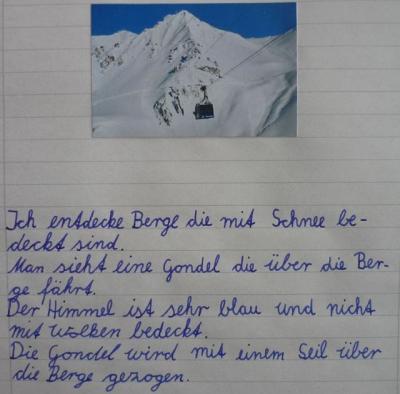 Ich entdecke Berge die mit Schnee be-
deckt sind.
Man sieht eine Gondel die über die Ber-
ge fährt.
Der Himmel ist sehr blau und nicht
mit Wolken bedeckt.
Die Gondel wird mit einem Seil über
die Berge gezogen.